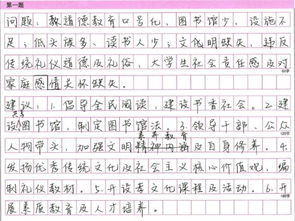 第一题
问题：救道德教育口号化，图书馆少，设施不
足；低头族多，读书人少；文化明缺失，违反
传统道德及礼俗，大学生社会责任感及对
家庭感情关怀缺失。
建议：1.倡导全民阅读，建设书香社会。2.建
设图书馆，制定图书馆法。3.领导干部、公众
素养教育
人物带头，加强文明精神内涵及自身修养。4.
发扬优秀传统文化及社会主义核心价值观，编
制礼仪教材。5.开设孝文化课程及活动。6.开
展素质教育及人才培养。